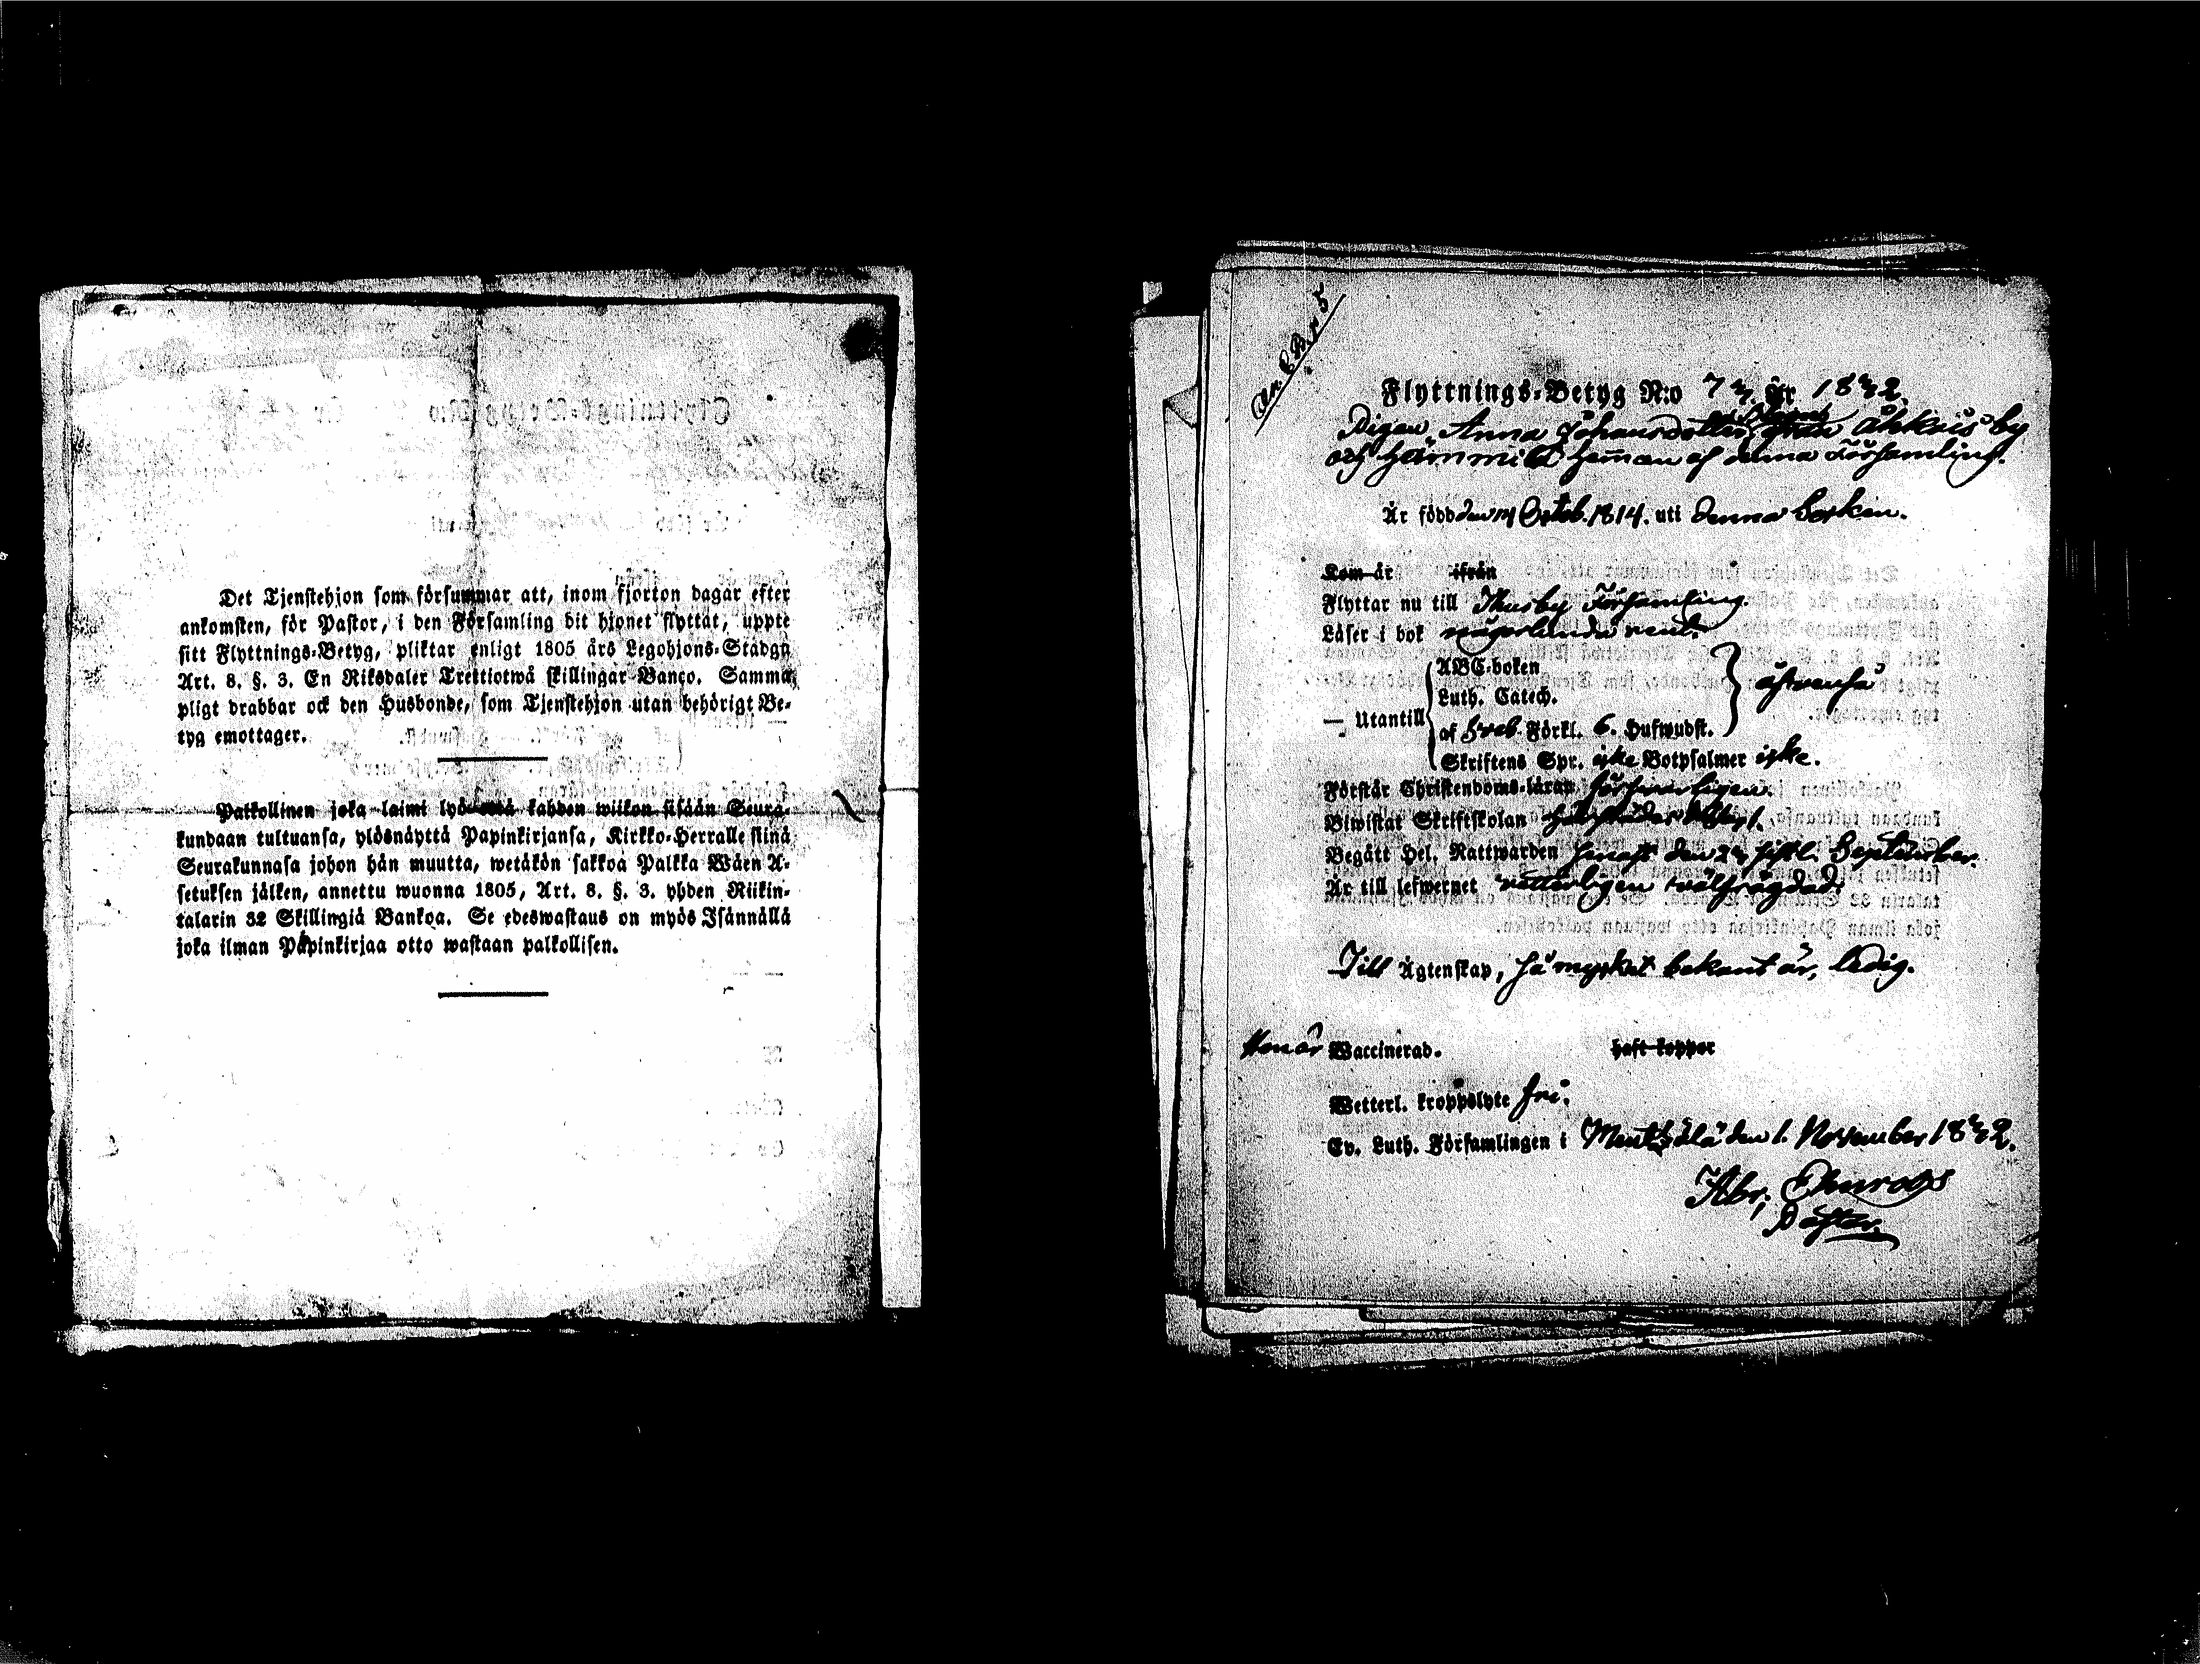 Det Tjenstehjon som försummar att, inom fjorton dagar efter
ankomsten, för Pastor, i den Församling dit hjonet flyttat, uppte
sitt Flyttnings-Betyg, pliktar enligt 1805 års Legohjons-Stadga
Art. 8. §. 3. En Riksdaler Trettiotwå skillingar Banco. Samma
pligt drabbar ock den Husbonde, som Tjenstehjon utan behörigt Be-
tyg emottager.
Palkollinen joka laimi lyö että kahden wiikon sisään Seura-
kundaan tultuansa, ylösnäyttä Papinkirjansa, Kirkko-Herralle siinä
Seurakunnasa johon hän muutta, wetäkön sakkoa Palkka Wäen A-
setuksen jälken, annettu wuonna 1805, Art. 8. §. 3. yhden Riikin-
talarin 32 Skillingiä Bankoa. Se edeswastaus on myös Isännällä
joka ilman Papinkirjaa otto wastaan palkollisen.
Flyttnings-Betyg N:o 74. År 1842.
Pigan Anna Johansdotter från by
och Hemman af denna Församling.
Är född den Octob. 1814. uti denna Socken.
Kom år ifrån
Flyttar nu till Thusby Församling.
Läser i bok någorlunda rent.
ABC-boken
Luth. Catech.
— Utantill
af Sveb. Förkl. 6. Hufwudst.
äfvenså
Skriftens Spr. icke Botpsalmer icke.
Förstår Christendoms-läran försvarligen.
Biwistat Skriftskolan
Begått Hel. Nattwarden senast den sistl. September.
Är till lefwernet veterligen välfrägdad.
Till Ägtenskap, så mycket bekant är, ledig.
Hon är Waccinerad. haft koppor
Wetterl. kroppslyte fri.
Ev. Luth. Församlingen i Mentsälä den 1. November 1842.
Abr.
Pastor.